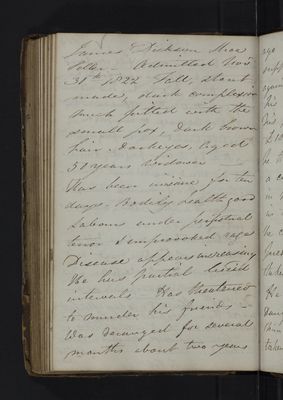 James Dickson Mac
Admitted Nov'r
31st 1822 Tall, stout
made, dark complexion
much pitted with the
small pox, Dark brown
hair Dark eyes, aged
50 years Widower
Has been insane for ten
days. Bodily health good
Labours under perpetual
terror & unprovoked rage
Disease appears increasing
He has partial lucid
intervals Has threatened
to murder his friends –
Was deranged for several
months about two years